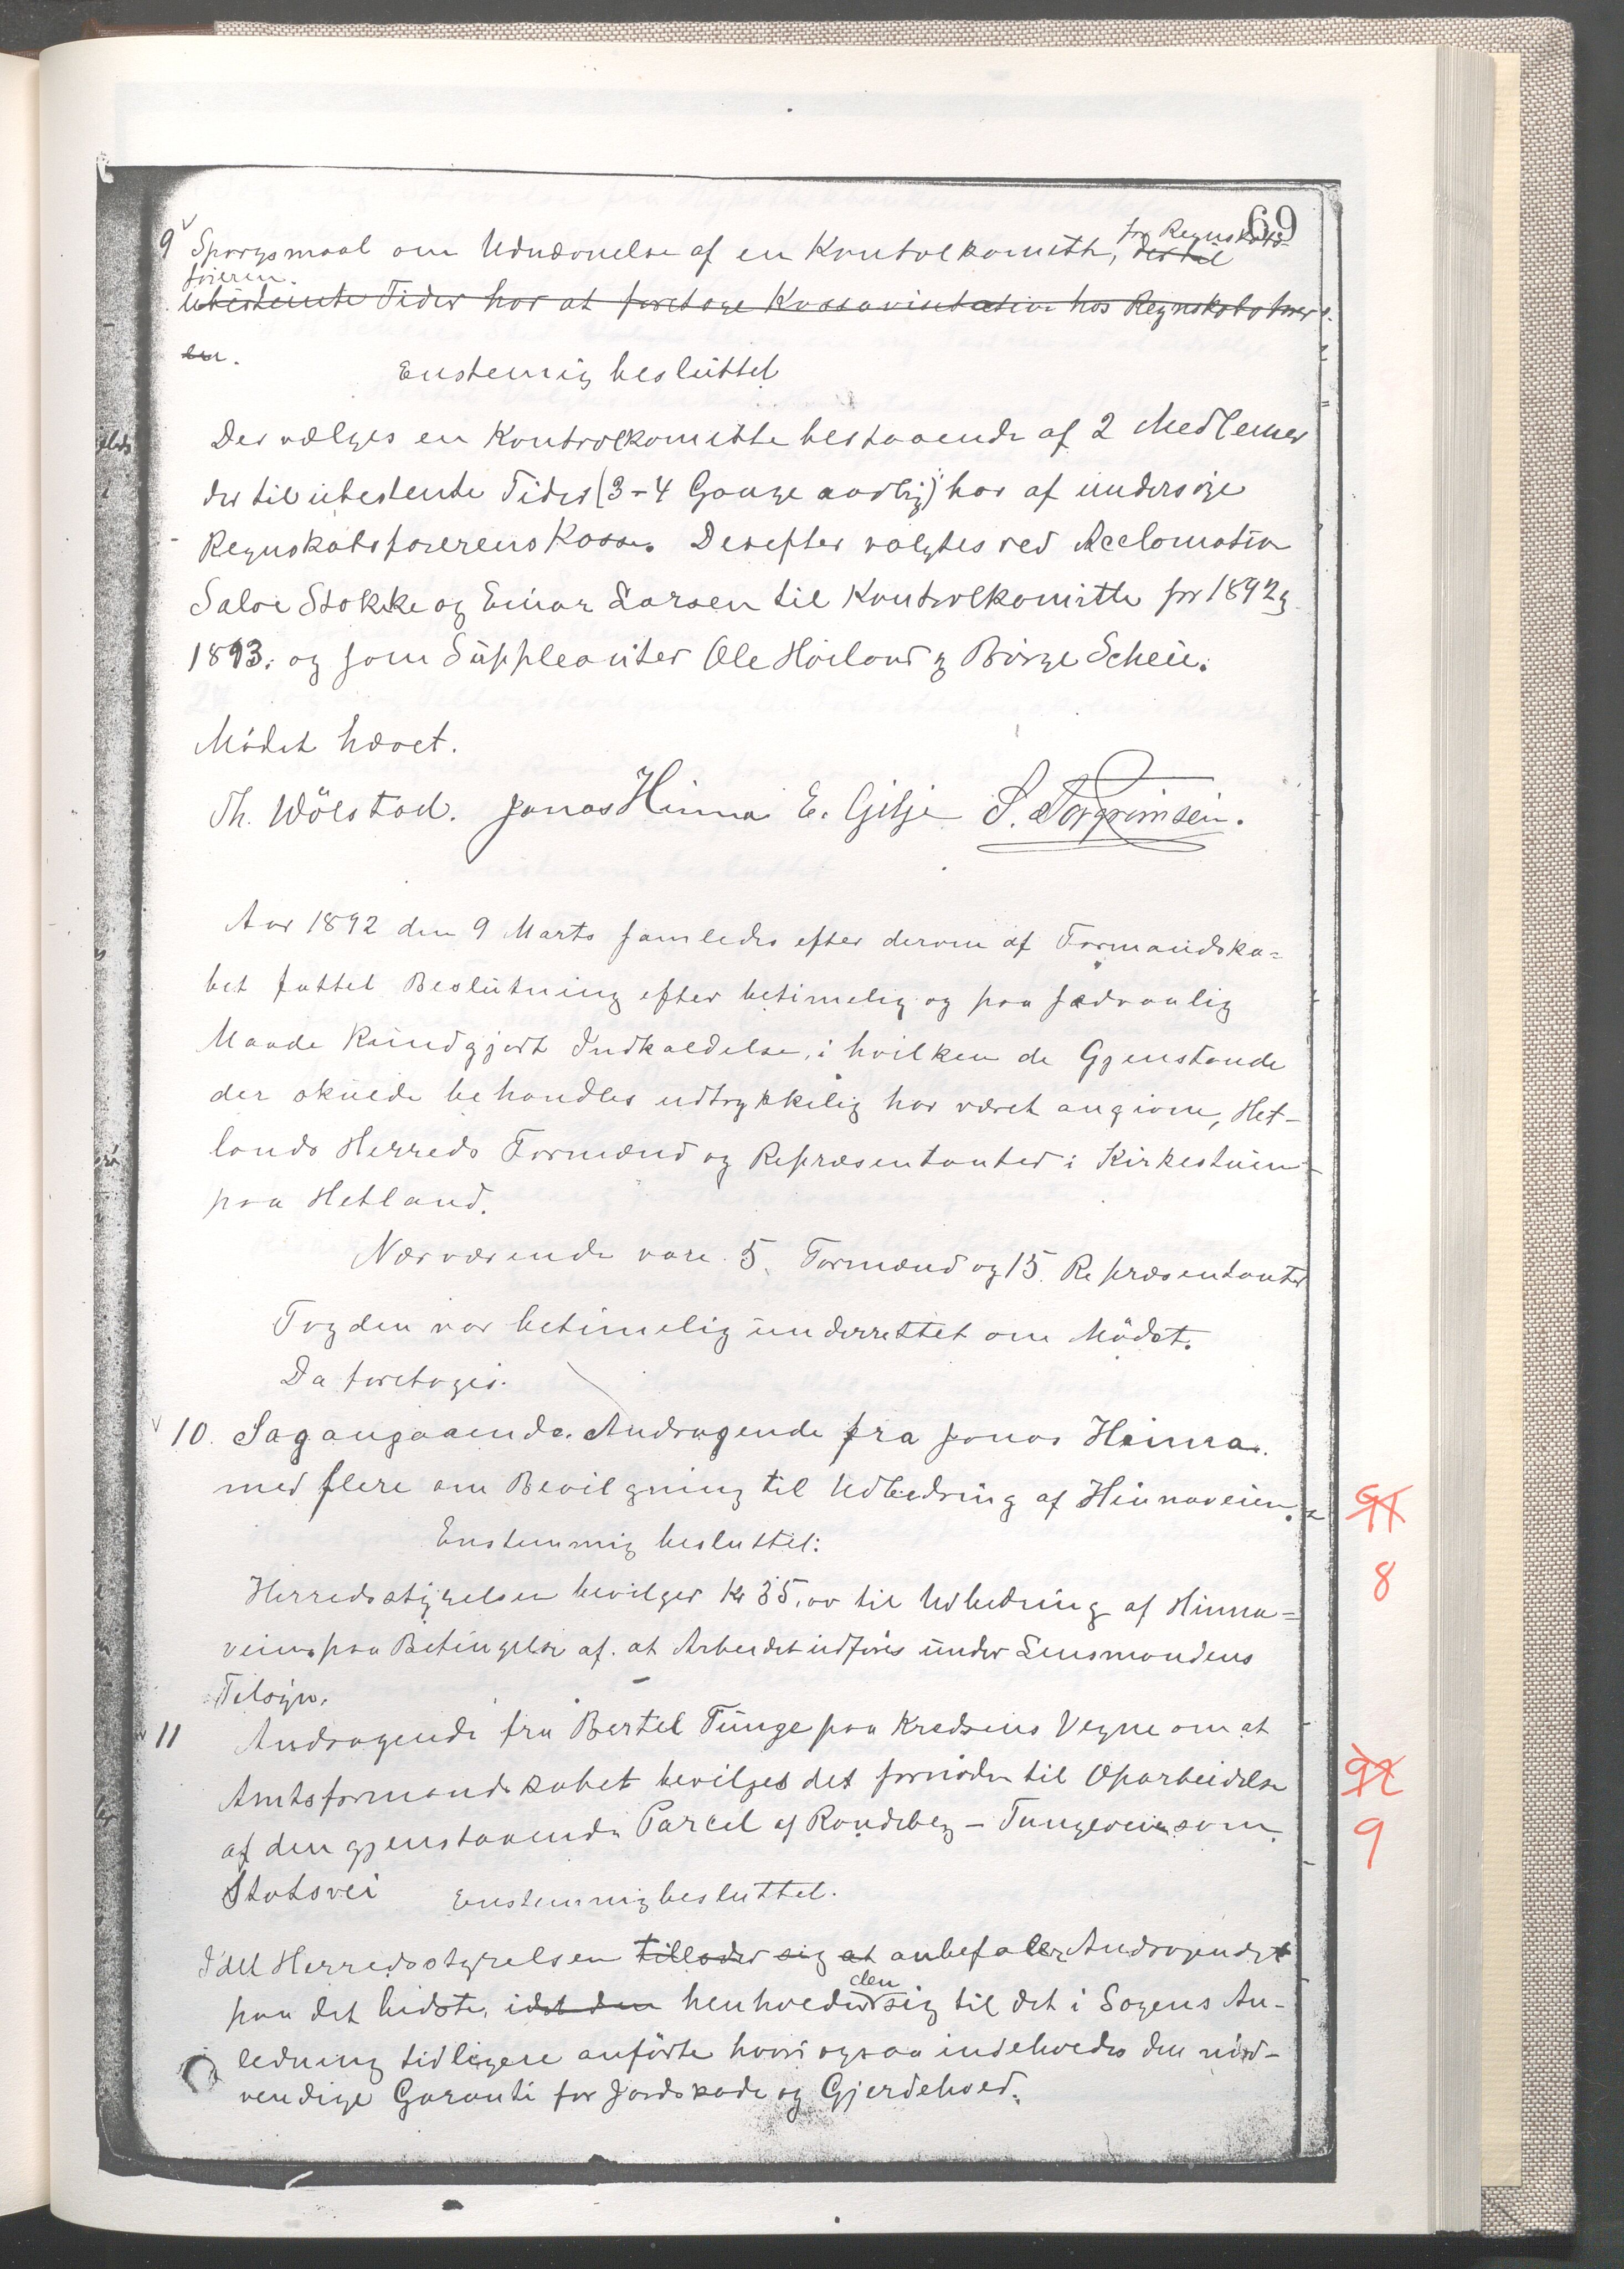 69
9 Sporgsmaal om Udnævnelse af en Kontrolkomitte, der til for Regnskabs-
føreren.
ubestemte Tider har at foretage Kassavisitation hos Regnskabsfører-
en.
Enstemig besluttet
Der vælges en Kontrolkomitte bestaaende af 2 Medlemer
der til ubestemte Tider (3-4 Gange aarlig) har af undersøge
Regnskabsførerens Kasse. Derefter valgtes ved Acclamation
Salve Stokke og Einar Larsen til Kontrolkomitte for 1892 og
1893. og som Suppleanter Ole Høiland og Børge Scheie.
Mödet hævet.
Th. Wölstad. Jonas Hinna E. Gilje S. Torgrimsen.
Aar 1892 den 9 Marts samledes efter derom af Formandska-
bet fattet Beslutning efter betimelig og paa sædvanlig
Maade kundgjort Indkaldelse, i hvilken de Gjenstande
der skulde behandles udtrykkelig har været angivne, Het-
lands Herreds Formænd og Repræsentanter i Kirkestuen
paa Hetland.
Nærværende vare 5. Formænd og 15. Repræsentanter
Fogden var betimelig underrettet om Mödet.
Da foretoges.
10. Sag angaaende Andragende fra Jonas Hinna
med flere om Bevilgning til Udbedring af Hinnaveien.
Enstemmig besluttet:
Herredsstyrelsen bevilger Kr 35,00 til Udbedring af Hinna-
veien paa Betingelse af. at Arbeidet udføres under Lensmandens
Tilsyn.
11 Andragende fra Bertel Tunge paa Kredsens Vegne om at
Amtsformandskabet bevilges det fornødne til Oparbeidelse
af den gjenstaaende Parcel af Randeberg - Tungeveien som
Statsvei Enstemmig besluttet.
Idet Herredsstyrelsen tillader sig at anbefaler Andragendet
paa det bedste, idet den henholder den sig til det i Sagens An-
ledning tidligere anförte hvori ogsaa indeholdes den nød-
vendige Garanti for Jordskade og Gjerdehold.
91
8
92
9